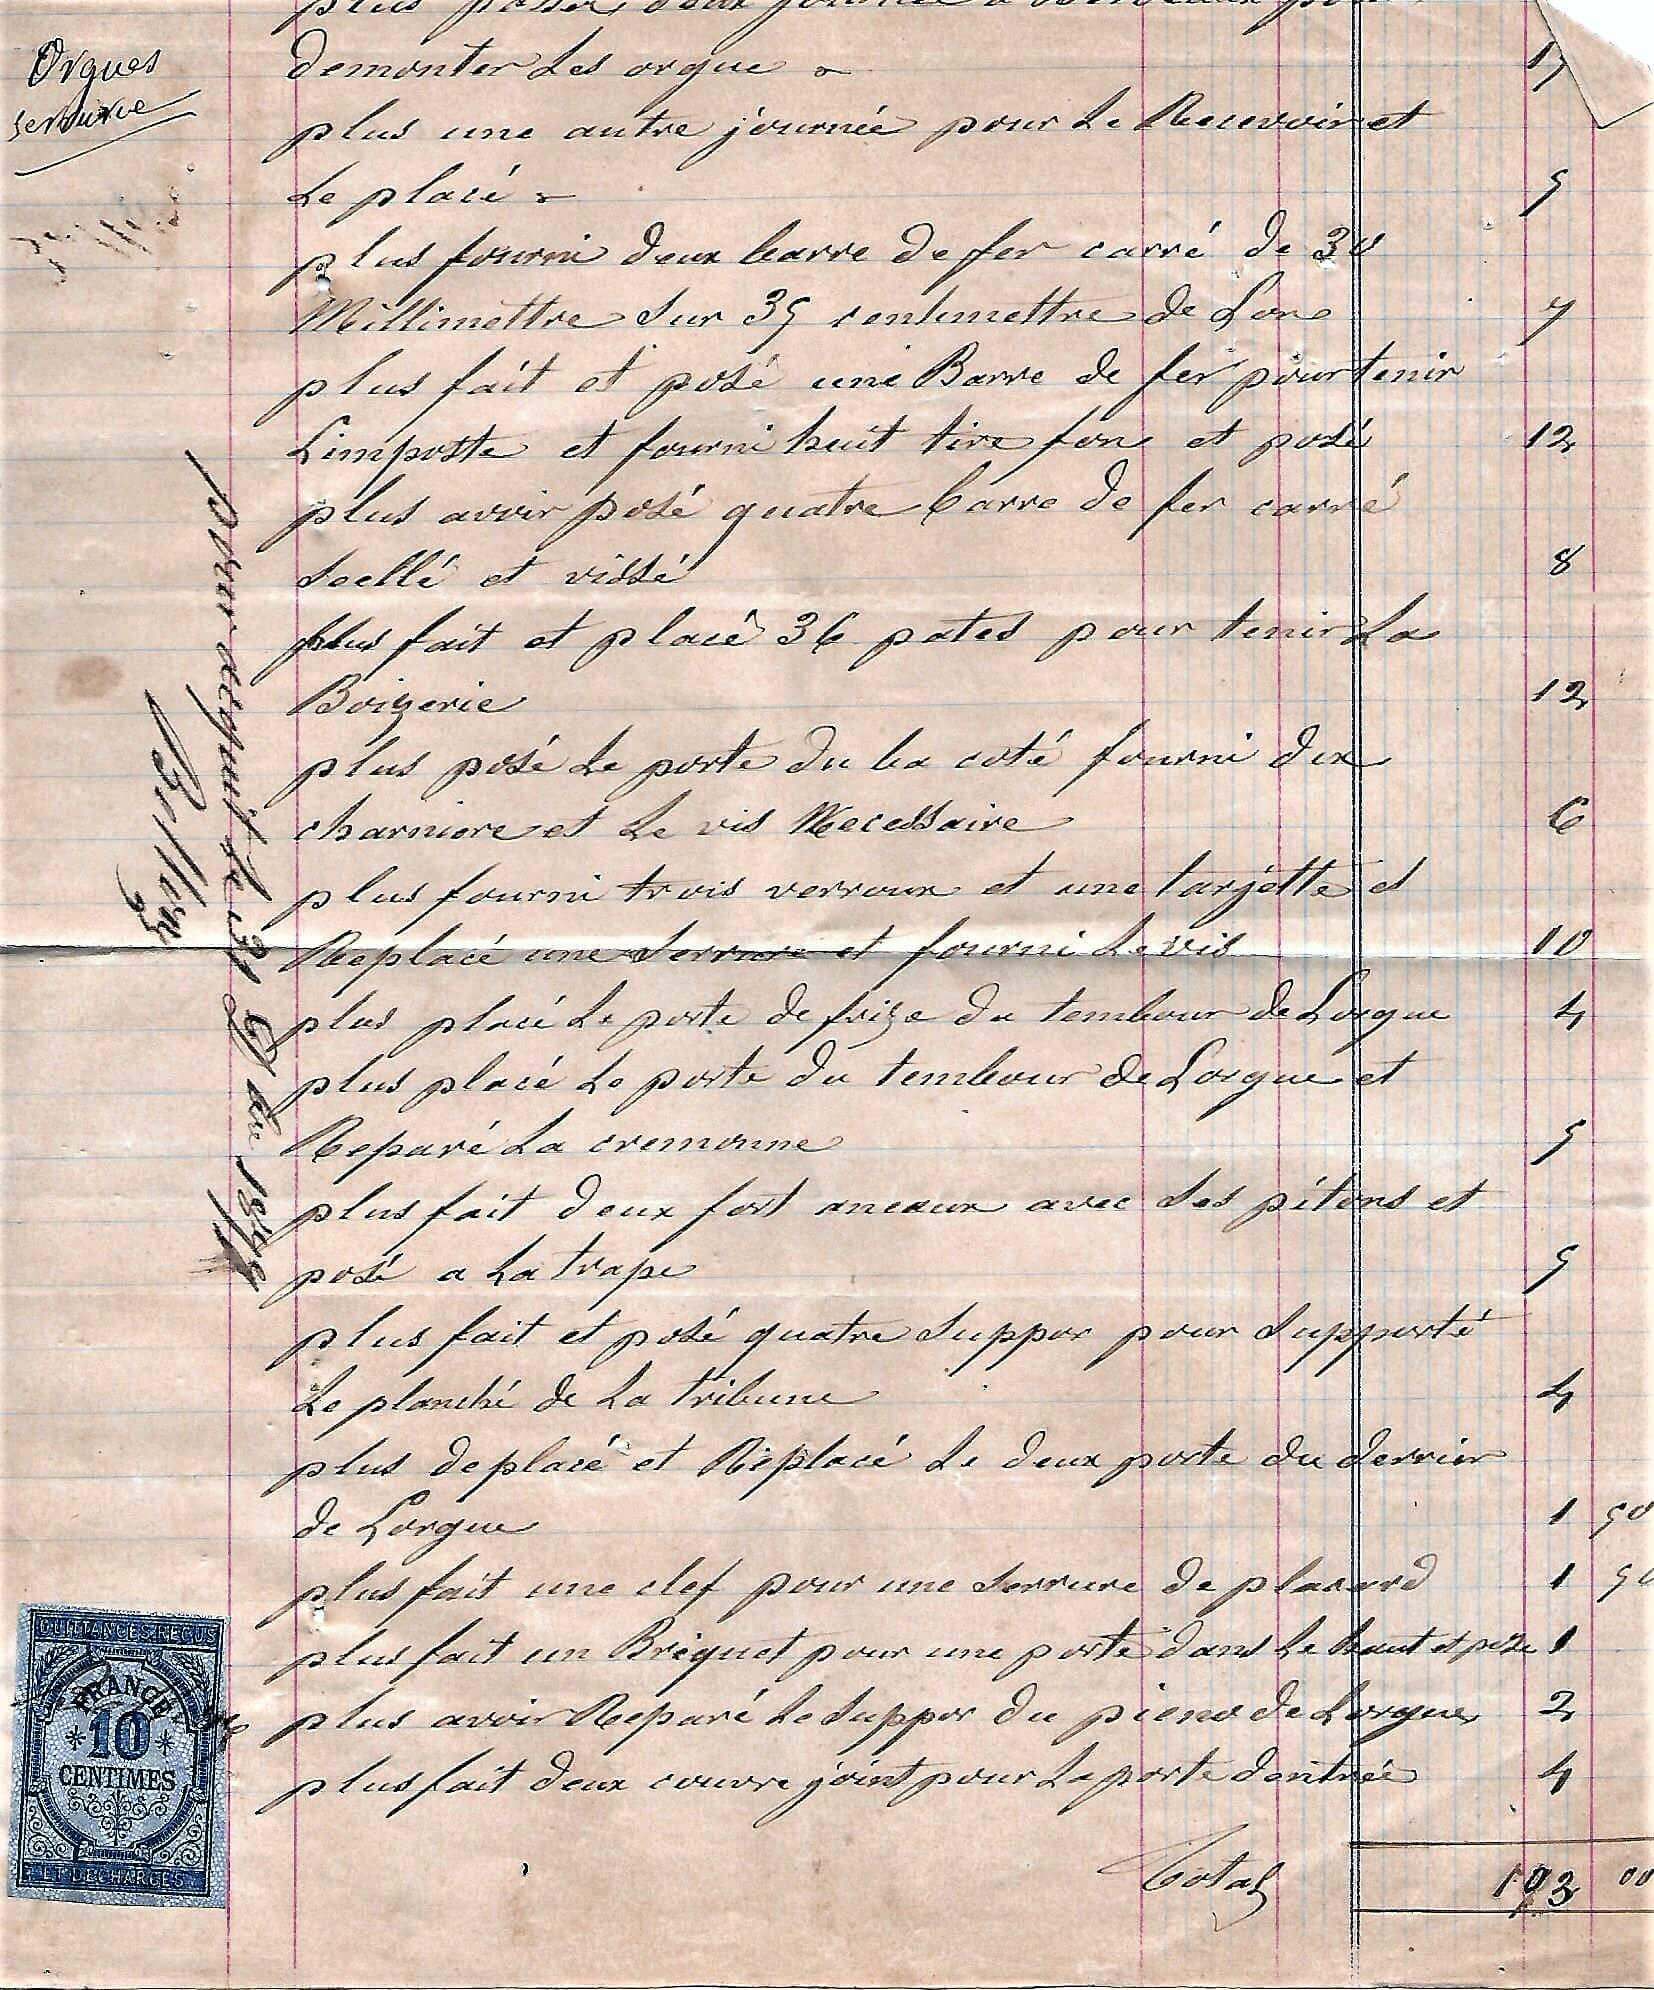 Orgues
serrurie
plus passer deux journée a Bordeaux pour
demonter Les orgue 15
plus une autre journée pour Le Recevoir et
Le placé 5
plus fourni deux barre de fer carré de 30
Millimettre sur 35 centimettre de Lon 7
plus fait et posé une Barre de fer pour tenir
Limposte et fourni huit tire fon et posé 12
plus avoir posé quatre barre de fer carré
scellé et vissé 8
plus fait et placé 36 pates pour tenir La
Boizerie 12
plus posé Le porte du ba coté fourni dix
charniere et Le vis Necessaire 6
plus fourni trois verroux et une targette et
Replacé une serrure et fourni Le vis 10
plus placé Le porte de frize du tembour de Lorgue 4
plus placé Le porte du tembour de Lorgue et
Reparé La cremonne 5
plus fait deux fort aneaux avec ses pitons et
posé a La trape 5
plus fait et posé quatre suppor pour supporté
Le planché de La tribune 4
plus deplacé et Replacé Le deux porte du derrier
de Lorgue 1 50
plus fait une clef pour une serrure de placard 1 50
plus fait un Briquet pour une porte dans Le haut et pose 1
plus avoir Reparé Le suppor du pieno de Lorgue 2
plus fait deux couvre joint pour La porte dentrée 4
Total 103 00
pour acquit le 31 Xbre 1875
QUITTANCES REÇUS
FRANCE
*10*
CENTIMES
ET DECHARGES